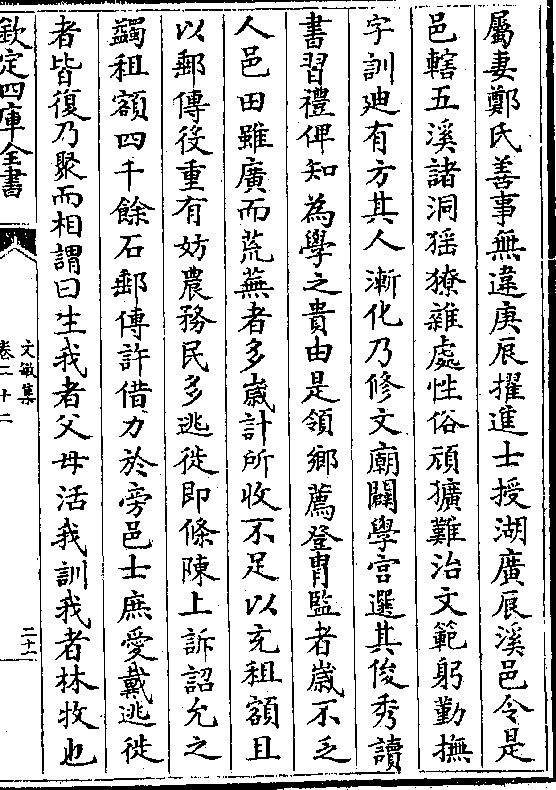 屬妻鄭氏善事無違庚辰擢進士授湖廣辰溪邑令是
邑轄五溪諸洞猺獠雜處性俗頑獷難治文範躬勤撫
字訓廸有方其人漸化乃修文廟闢學宫選其俊秀讀
書習禮俾知為學之貴由是領鄉薦登胄監者歳不乏
人邑田雖廣而荒蕪者多歳計所收不足以充租額且
以郵傳役重有妨農務民多逃徙即條陳上訴詔允之
蠲租額四千餘石郵傳許借力於旁邑士庶愛戴逃徙
者皆復乃聚而相謂曰生我者父母活我訓我者林牧也
欽定四庫全書
文敏集
卷二十二
二十一